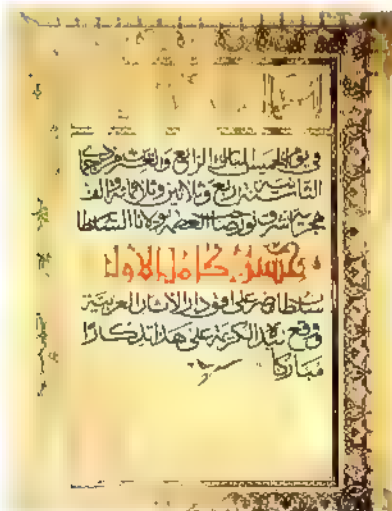 في يوم الخميس المبارك الرابع والعشرين من جمادى
الثانية سنة اربع وثلاثين وثلاثمائة والف
هجرية شرف نور صاحب العظمة مولانا السلطان
حسين كامل الاول
سلطان مصر على افق دار الاثار العربية
ووقع بيده الكريمة على هذا تذكارا
مباركا